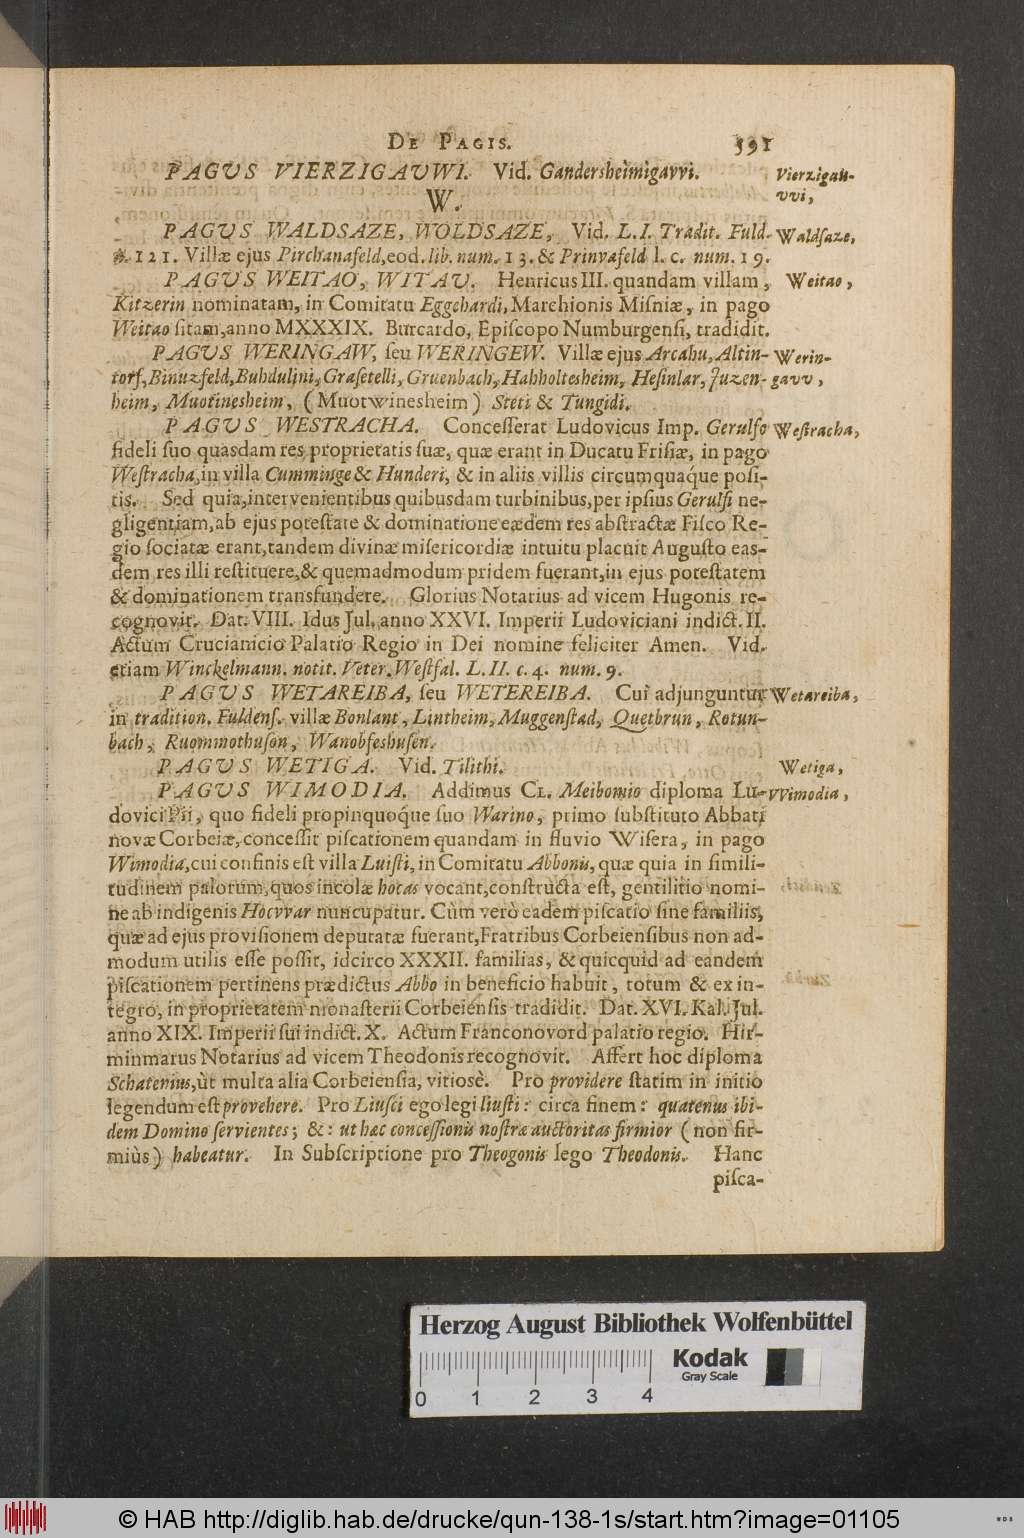 DE PAGIS. 591
PAGUS VIERZIGAUWI. Vid. Gandersheimigavvi. Vierzigau-
vvi,
W.
PAGUS WALDSAZE, WOLDSAZE, Vid. L. I. Tradit. Fuld. Waldsaze,
121. Villæ ejus Pirchanafeld, eod. lib. num. 13. & Prinvafeld l. c. num. 19.
PAGUS WEITAO, WITAU. Henricus III. quandam villam, Weitao,
Kitzerin nominatam, in Comitatu Eggehardi, Marchionis Misniæ, in pago
Weitao sitam, anno MXXXIX. Burcardo, Episcopo Numburgensi, tradidit.
PAGUS WERINGAW, seu WERINGEW. Villæ ejus Arcahu, Altin- Werin-
torf, Binuzfeld, Buhdulini, Grasetelli, Gruenbach, Hahholtesheim, Hesinlar, Juzen- gavv,
heim, Muotinesheim, (Muotwinesheim) Steti & Tungidi.
PAGUS WESTRACHA. Concesserat Ludovicus Imp. Gerulfo Westracha,
fideli suo quasdam res proprietatis suæ, quæ erant in Ducatu Frisiæ, in pago
Westracha, in villa Cumminge & Hunderi, & in aliis villis circumquaq́ue posi-
tis. Sed quia, intervenientibus quibusdam turbinibus, per ipsius Gerulfi ne-
gligentiam, ab ejus potestate & dominatione eædem res abstractæ Fisco Re-
gio sociatæ erant, tandem divinæ misericordiæ intuitu placuit Augusto eas-
dem res illi restituere, & quemadmodum pridem fuerant, in ejus potestatem
& dominationem transfundere. Glorius Notarius ad vicem Hugonis re-
cognovit. Dat. VIII. Idus Jul. anno XXVI. Imperii Ludoviciani indict. II.
Actum Crucianicio Palatio Regio in Dei nomine feliciter Amen. Vid.
etiam Winckelmann. notit. Veter. Westfal. L. II. c. 4. num. 9.
PAGUS WETAREIBA, seu WETEREIBA. Cui adjunguntur Wetareiba,
in tradition. Fuldens. villæ Bonlant, Lintheim, Muggenstad, Quetbrun, Rotun-
bach, Ruommothuson, Wanobfeshusen.
PAGUS WETIGA. Vid. Tilithi. Wetiga,
PAGUS WIMODIA. Addimus CL. Meibomio diploma Lu- VVimodia,
dovici Pii, quo fideli propinquoq́ue suo Warino, primo substituto Abbati
novæ Corbeiæ, concessit piscationem quandam in fluvio Wisera, in pago
Wimodia, cui confinis est villa Luisti, in Comitatu Abbonis, quæ quia in simili-
tudinem palorum, quos incolæ hocas vocant, constructa est, gentilitio nomi-
ne ab indigenis Hocvvar nuncupatur. Cùm verò eadem piscatio sine familiis,
quæ ad ejus provisionem deputatæ fuerant, Fratribus Corbeiensibus non ad-
modum utilis esse possit, idcirco XXXII. familias, & quicquid ad eandem
piscationem pertinens prædictus Abbo in beneficio habuit, totum & ex in-
tegro, in proprietatem monasterii Corbeiensis tradidit. Dat. XVI. Kal. Jul.
anno XIX. Imperii sui indict. X. Actum Franconovord palatio regio. Hir-
minmarus Notarius ad vicem Theodonis recognovit. Affert hoc diploma
Schatenius, ùt multa alia Corbeiensia, vitiosè. Pro providere statim in initio
legendum est provehere. Pro Liusci ego legi liusti: circa finem: quatenus ibi-
dem Domino servientes; &: ut hæc concessionis nostræ auctoritas firmior (non fir-
miùs) habeatur. In Subscriptione pro Theogonis lego Theodonis. Hanc
pisca-
Herzog August Bibliothek Wolfenbüttel
Kodak
Gray Scale
0 1 2 3 4
© HAB http://diglib.hab.de/drucke/qun-138-1s/start.htm?image=01105